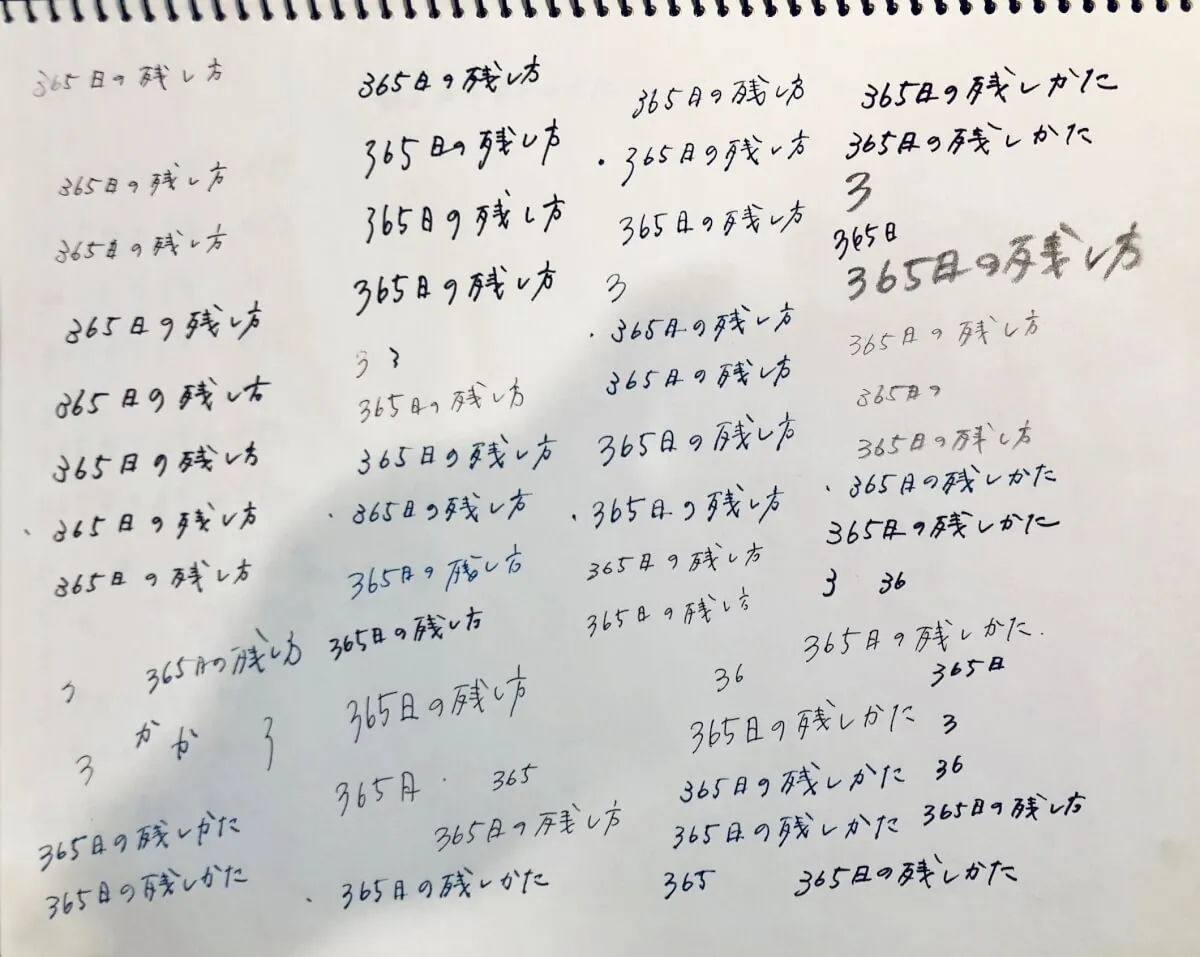 365日の残し方
365日の残し方
365日の残し方
365日の残し方
365日の残し方
365日の残し方
365日の残し方
365日の残し方
365日の残し方
3
かか
3
3
365日の残しかた
365日の残しかた
365日の残し方
365日の残し方
365日の残し方
365日の残し方
3 3
365日の残し方
365日の残し方
365日の残し方
365日の残し方
365日の残し方
365日の残し方
365日
365
365日の残し方
365日の残しかた
365日の残し方
365日の残し方
365日の残し方
3
365日の残し方
365日の残し方
365日の残し方
365日の残し方
365日の残し方
365日の残し方
36
365日の残しかた
365日の残しかた
365日の残しかた
365
365日の残しかた
365日の残しかた
3
365日
365日の残し方
365日の残し方
365日の
365日の残し方
365日の残しかた
365日の残しかた
3 36
365日の残しかた.
365日
3
36
365日の残し方
365日の残しかた